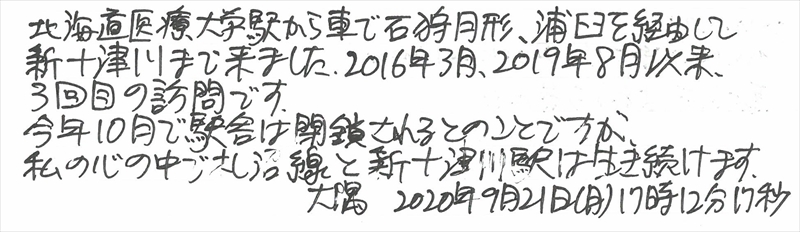 北海道医療大学駅から車で石狩月形、浦臼を経由して
新十津川まで来ました.2016年3月、2019年8月以来、
3回目の訪問です.
今年10月で駅舎は閉鎖されるとのことですが、
私の心の中で 沿線と新十津川駅は生き続けます.
大隅 2020年9月21日(月)17時12分17秒